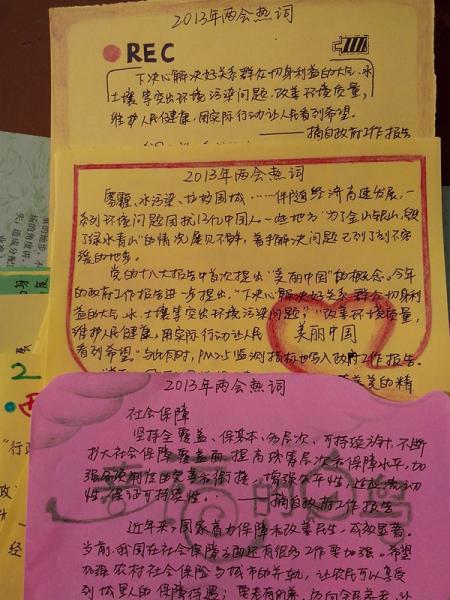 2013年两会热词
REC
下决心解决好关系群众切身利益的大气、水
土壤等突出环境污染问题,改善环境质量,
维护人民健康,用实际行动让人民看到希望。
——摘自政府工作报告
2013年两会热词
雾霾、水污染、垃圾围城……伴随经济高速发展,一
系列环境问题困扰13亿中国人。一些地方"为了金山银山,毁
了绿水青山"的情况屡见不鲜,着手解决问题已到了刻不容
缓的地步。
党的十八大报告中首次提出"美丽中国"的概念。今年
的政府工作报告进一步提出,"下决心解决好关系群众切身利
益的大气、水、土壤等突出环境污染问题,改善环境质量,
维护人民健康,用实际行动让人民
美丽中国
看到希望。"与此同时,PM2.5监测指标也写入政府工作报告。
2013年两会热词
社会保障
坚持全覆盖、保基本、多层次、可持续方针,不断
扩大社会保障覆盖面,提高统筹层次和保障水平,加
强各项制度的完善和衔接,增强公平性,适应流动
性,保证可持续性。
——摘自政府工作报告
近年来,国家着力保障和改善民生,成效显著。
当前,我国在社会保障方面还有很多工作要加强。希望
加强农村社会保险与城市的并轨,让农民可以享受
到城里人的保障待遇;
2
"行政